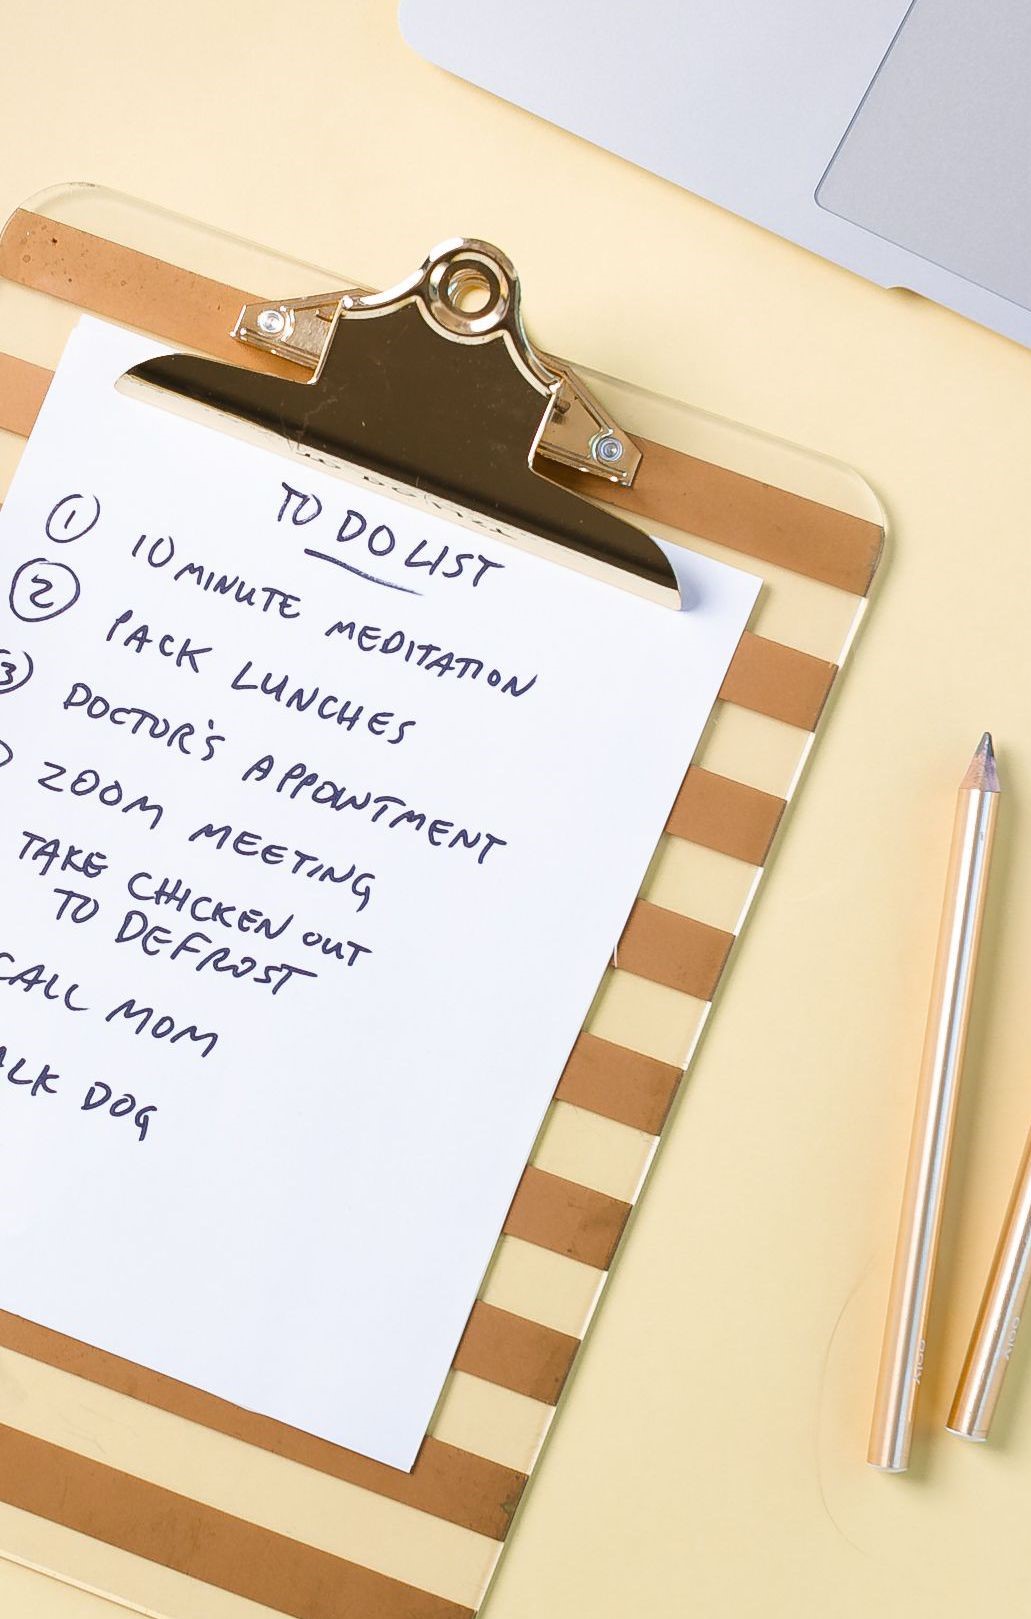 TO DO LIST
① 10 MINUTE MEDITATION
② PACK LUNCHES
③ DOCTOR'S APPOINTMENT
ZOOM MEETING
TAKE CHICKEN OUT
TO DEFROST
CALL MOM
ALK DOG
ooly
ooly